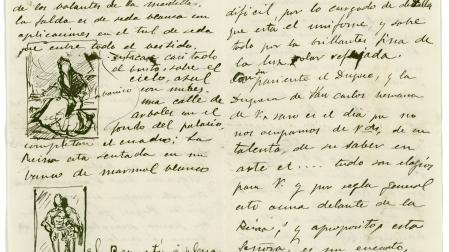 de los volantes de la mantilla.
la falda es de seda blanca con
aplicaciones en el tul de seda
que cubre todo el vestido.
Destacan casi todo
el busto, sobre el
cielo, azul
con nubes.
una calle de
arboles en el
fondo del palacio
completan el cuadro; La
Reina esta sentada en un
banco de marmol blanco
dificil, por lo cargado de detalles
que esta el uniforme, y sobre
todo por la brillantez fina de
la luz solar reflejada.
pariente el Duque, y la
Duquesa de San Carlos hermana
de V. raro es el dia que no
nos ocupamos de Vds, de su
talento, de su saber en
arte et.... todo son elogios
para V. y por regla general
esto ocurre delante de la
Reina; y aproposito, esta
Señora, es un encanto,